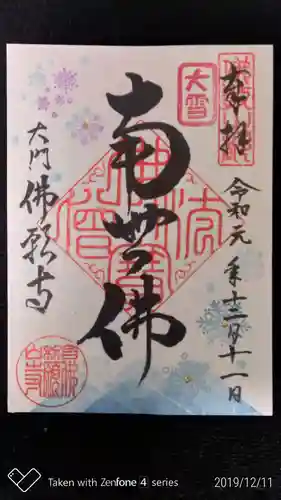 奉拝
大雪
令和元年十二月十一日
南無佛
大門 佛願寺
Taken with Zenfone 4 series
2019/12/11